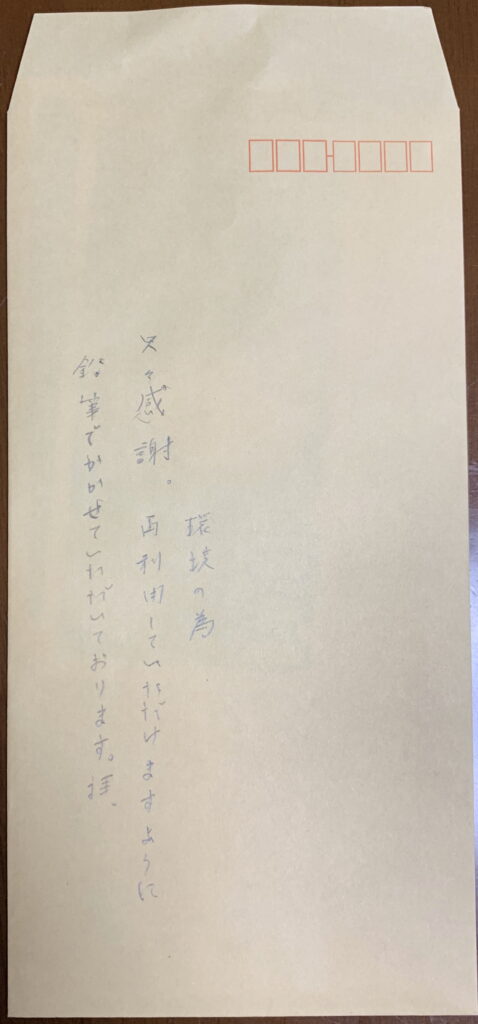 環境の為
只々感謝。再利用していただけますように
鉛筆でかかせていただいております。拝、